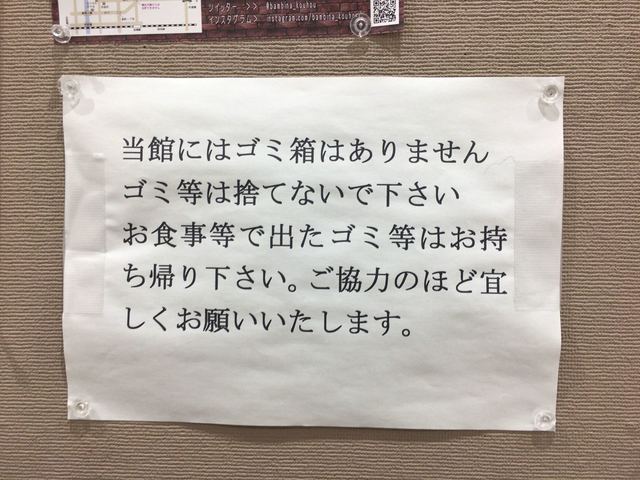 ツイッター >> @bambina_kouhou
インスタグラム> instagram.com/bambina_kouhou
当館にはゴミ箱はありません
ゴミ等は捨てないで下さい
お食事等で出たゴミ等はお持
ち帰り下さい。ご協力のほど宜
しくお願いいたします。